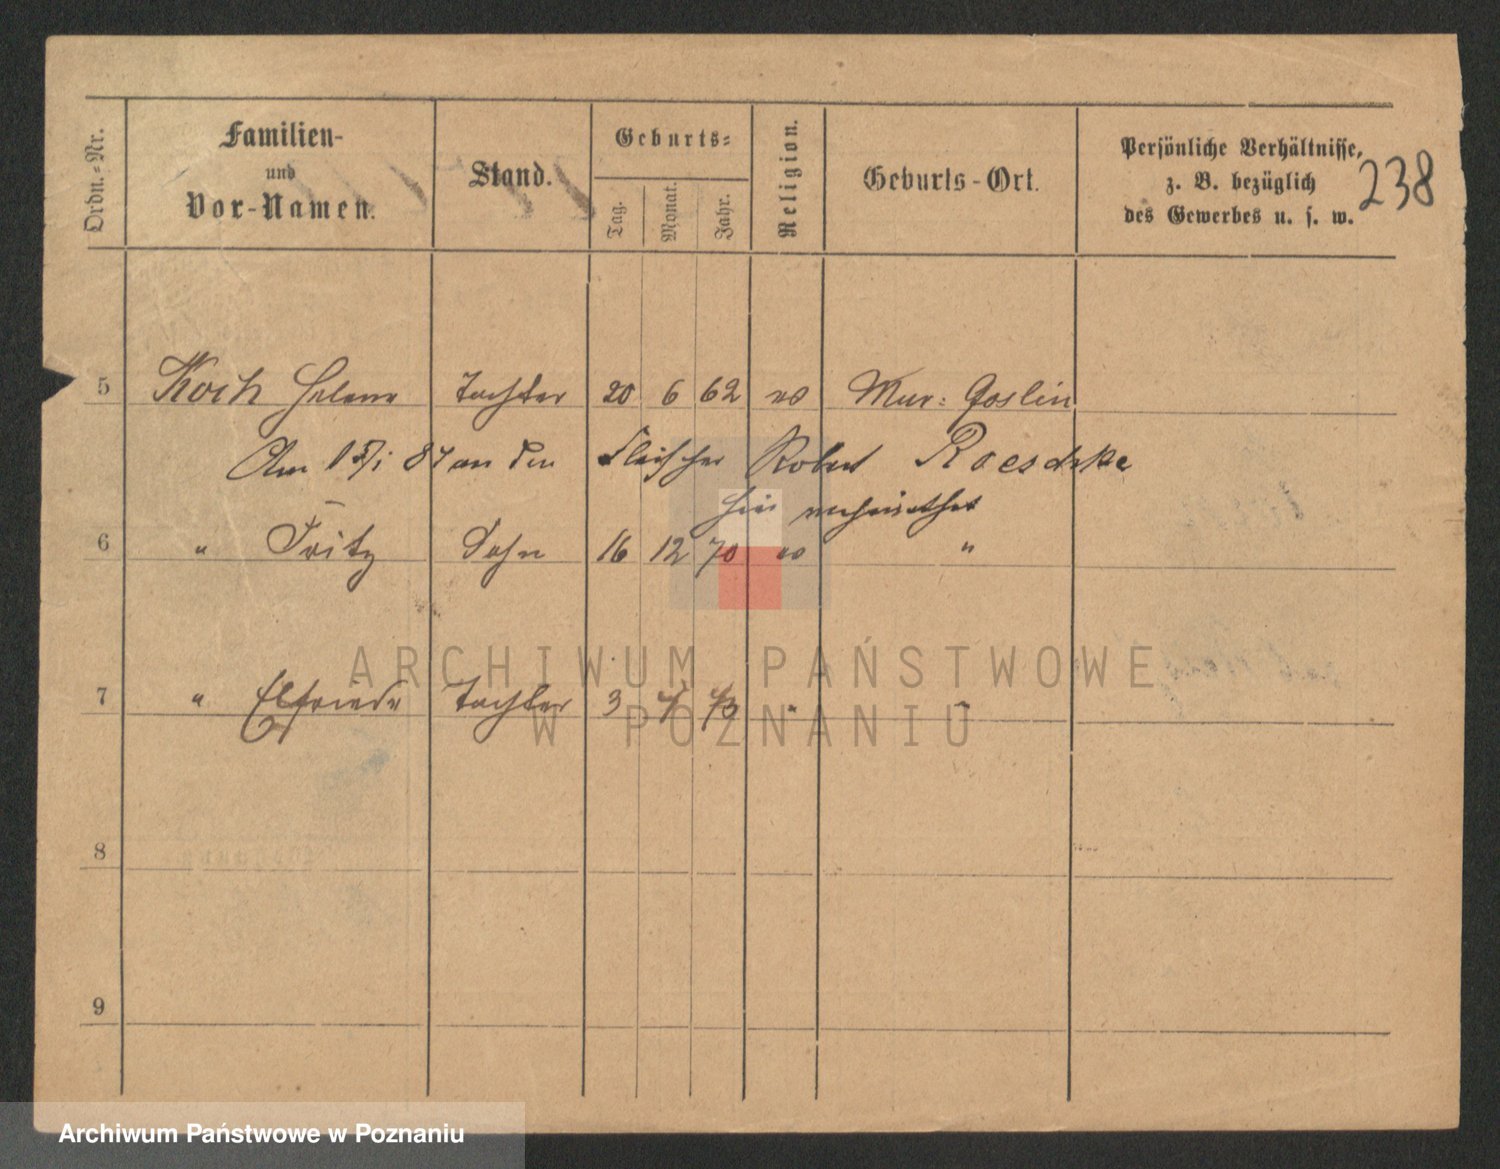 Ordn.-Nr.
Familien-
und
Vor-Namen.
Stand.
Geburts-
Tag.
Monat.
Jahr.
Religion.
Geburts-Ort.
Persönliche Verhältnisse,
z. B. bezüglich
des Gewerbes u. s. w.
238
5 Koch Helene Tochter 20 6 62 ev Mur: Goslin
Am 15/1 87 an den Fleischer Robert Roeschke
hier verheirathet
6 " Fritz Sohn 16 12 70 ev "
7 " Elfriede Tochter 3 73 " "
8
9
ARCHIWUM PAŃSTWOWE
W POZNANIU
Archiwum Państwowe w Poznaniu